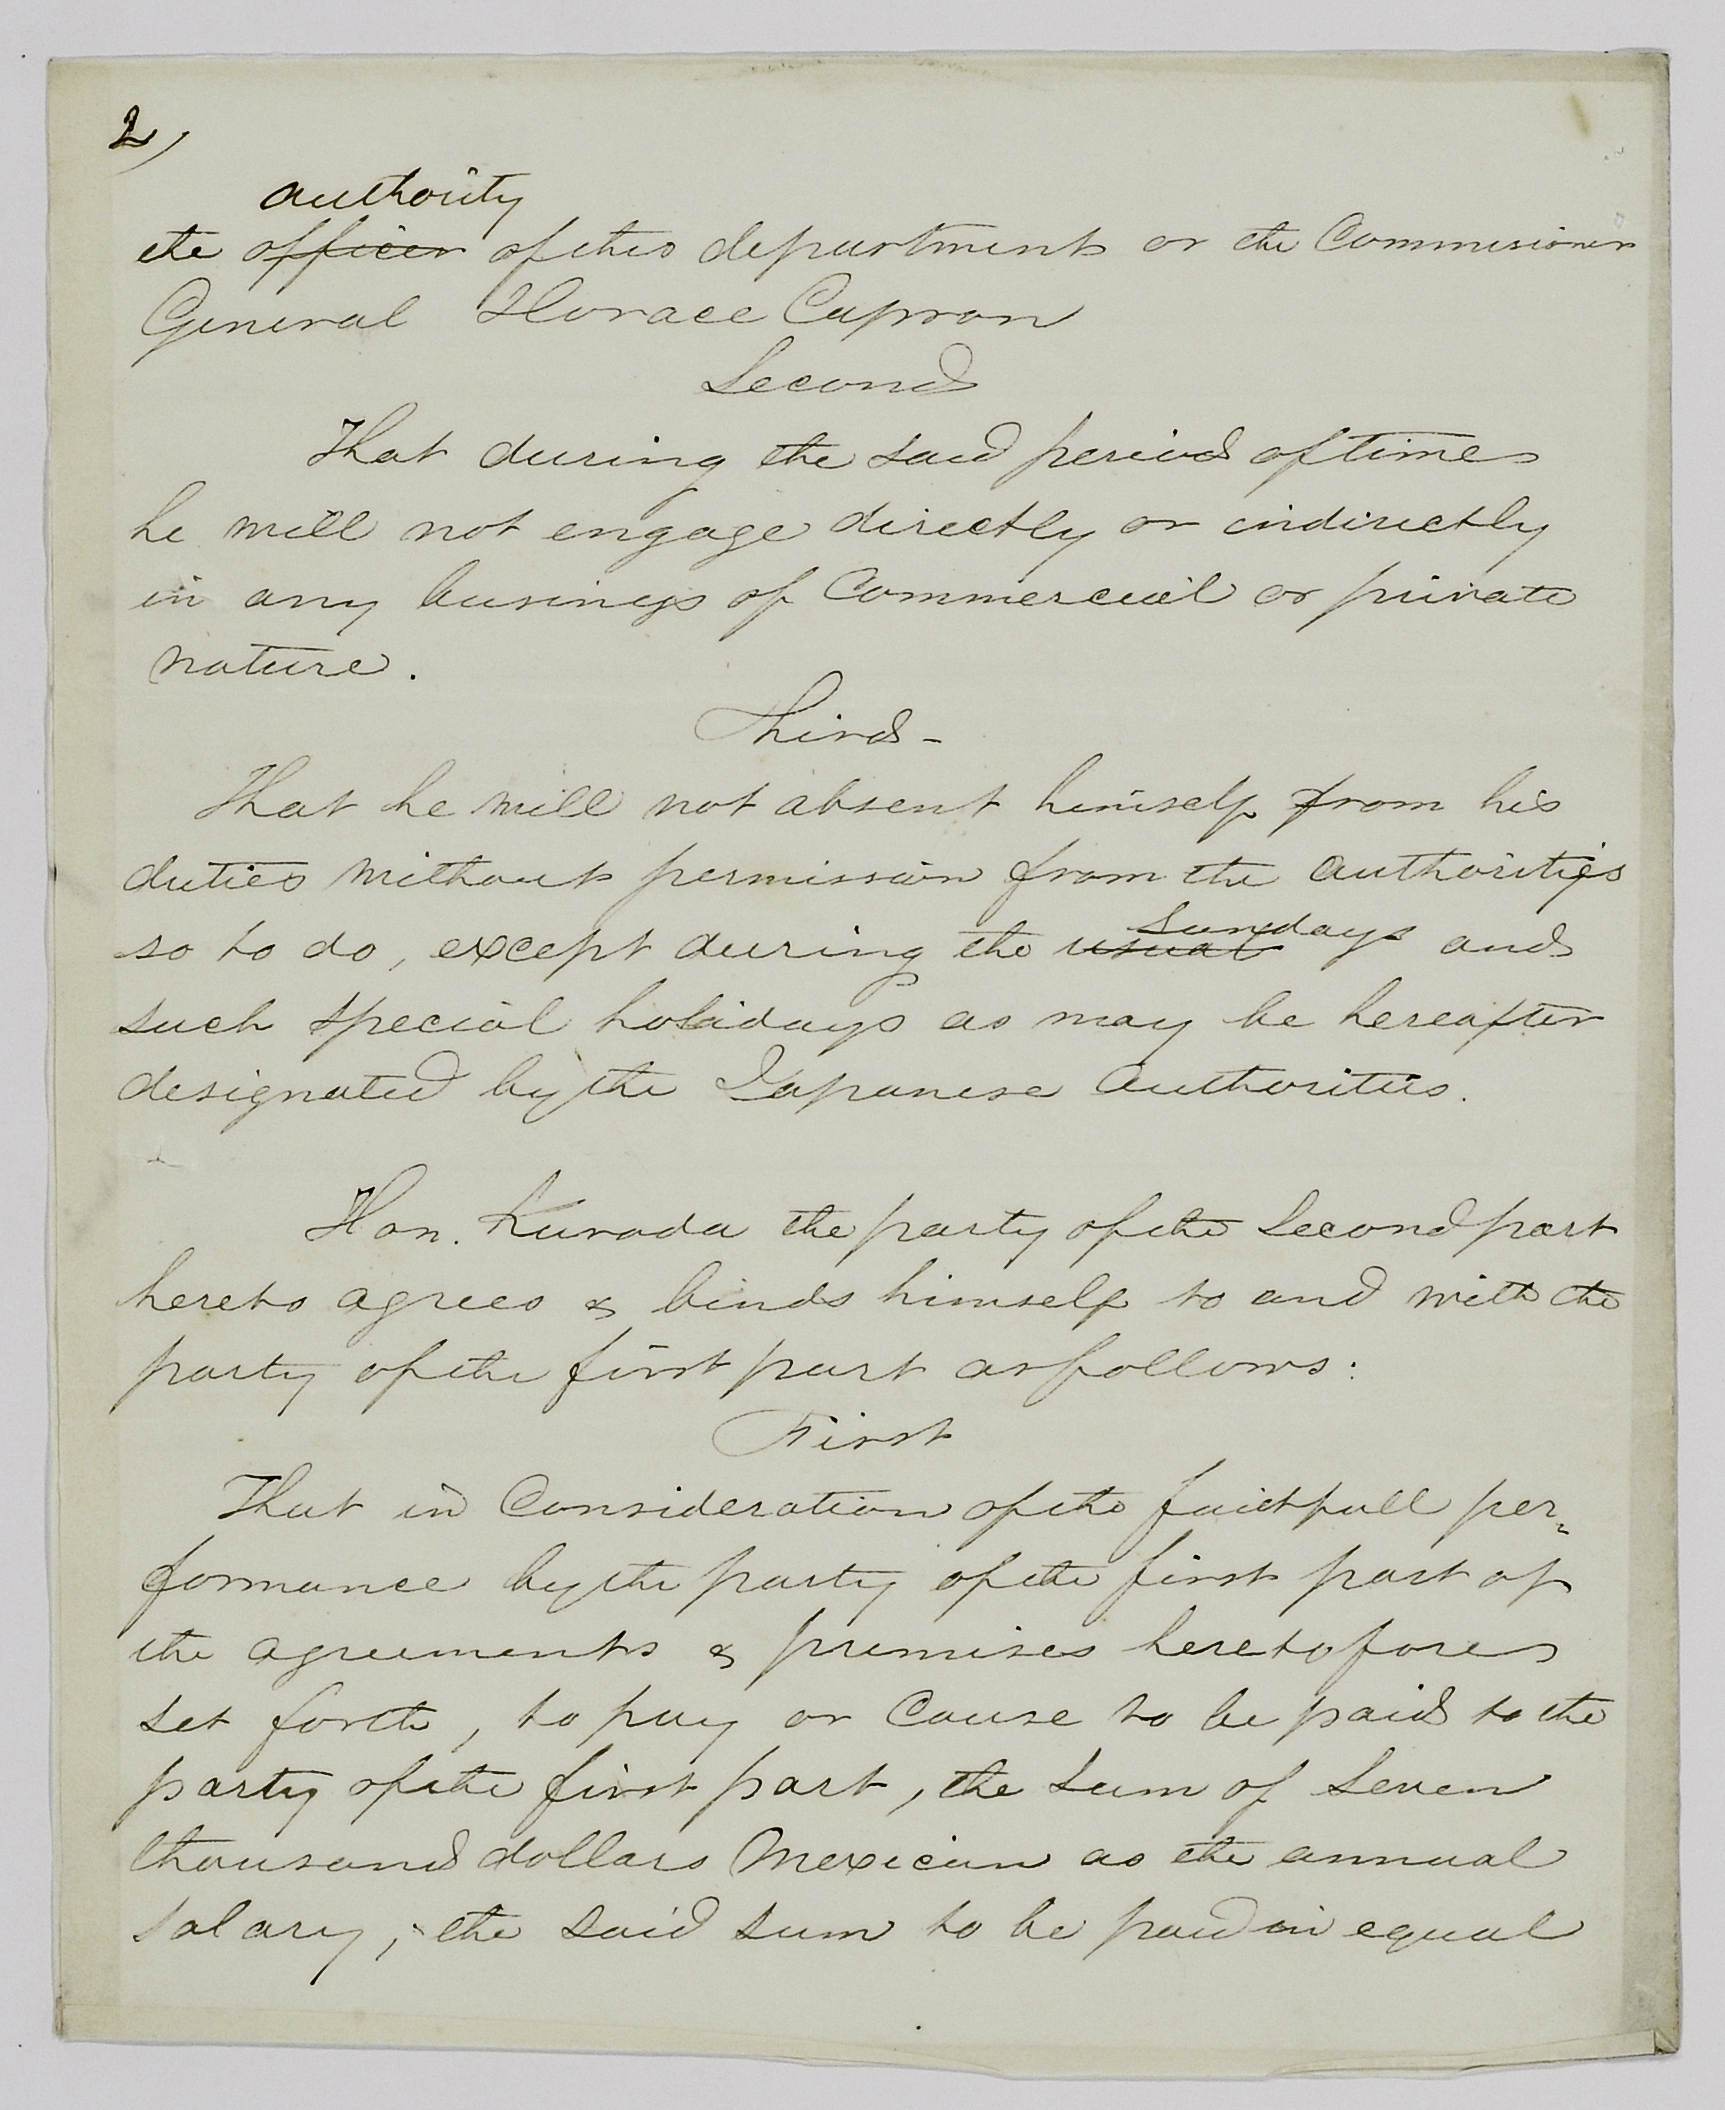 2)
authority
the officer of this department or the Commissioner
General Horace Capron
Second
That during the said period of time
he will not engage directly or indirectly
in any business of Commercial or private
nature.
Third-
That he will not absent himself from his
duties without permission from the authorities
so to do, except during the usual Sundays and
such special holidays as may be hereafter
designated by the Japanese Authorities.
Hon. Kuroda the party of the Second part
hereto agrees & binds himself to and with the
party of the first part as follows:
First
That in Consideration of the faithfull per-
formance by the party of the first part of
the agreements & premises heretofore
set forth, to pay or Cause to be paid to the
party of the first part, the sum of Seven
thousand dollars Mexican as the annual
salary, the said sum to be paid in equal